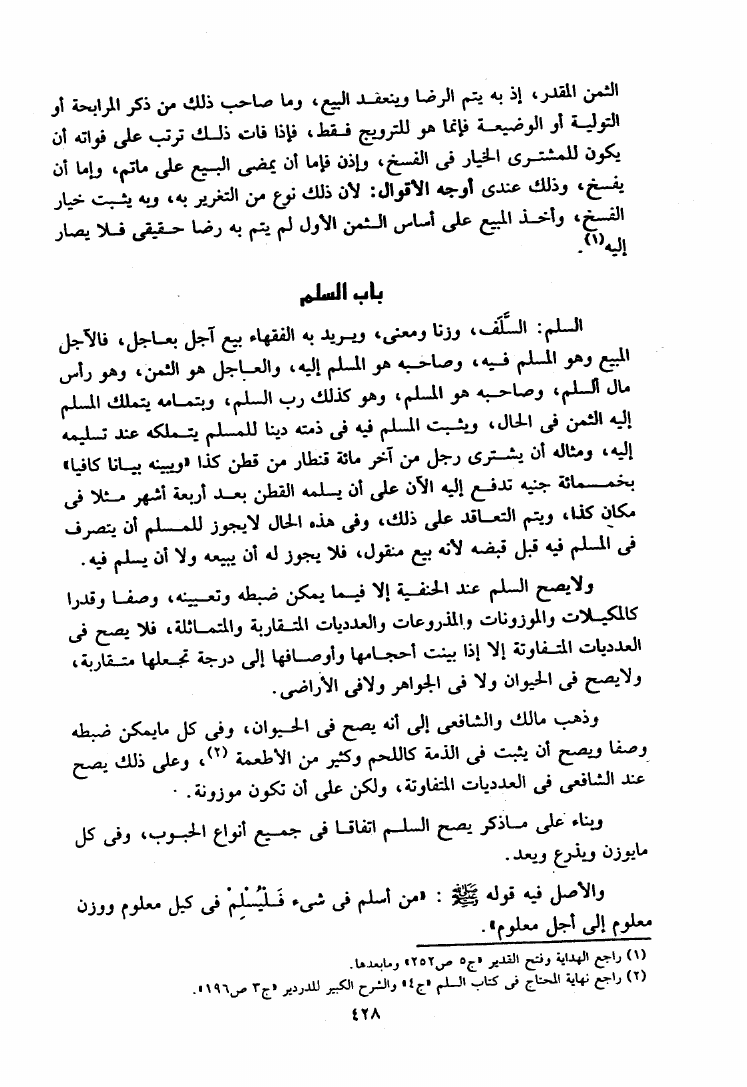 الثمن المقدر، إذ به يتم الرضا وينعقد البيع، وما صاحب ذلك من ذكر المرابحة أو
التولية أو الوضيعة فإنما هو للترويج فقط، فإذا فات ذلك ترتب على فواته أن
يكون للمشترى الخيار فى الفسخ، وإذن فإما أن يمضى البيع على ماتم، وإما أن
يفسخ، وذلك عندى أوجه الأقوال: لأن ذلك نوع من التغرير به، وبه يثبت خيار
الفسخ، وأخذ المبيع على أساس الثمن الأول لم يتم به رضا حقيقى فلا يصار
إليه(١).
باب السلم
السلم: السَّلَف، وزنا ومعنى، ويريد به الفقهاء بيع آجل بعاجل، فالآجل
المبيع وهو المسلم فيه، وصاحبه هو المسلم إليه، والعاجل هو الثمن، وهو رأس
مال السلم، وصاحبه هو المسلم، وهو كذلك رب السلم، وبتمامه يتملك المسلم
إليه الثمن فى الحال، ويثبت المسلم فيه فى ذمته دينا للمسلم يتملكه عند تسليمه
إليه، ومثاله أن يشترى رجل من آخر مائة قنطار من قطن كذا «ويبينه بيانا كافيا»
بخمسمائة جنيه تدفع إليه الآن على أن يسلمه القطن بعد أربعة أشهر مثلا فى
مكان كذا، ويتم التعاقد على ذلك، وفى هذه الحال لايجوز للمسلم أن يتصرف
فى المسلم فيه قبل قبضه لأنه بيع منقول، فلا يجوز له أن يبيعه ولا أن يسلم فيه.
ولايصح السلم عند الحنفية إلا فيما يمكن ضبطه وتعيينه، وصفا وقدرا
كالمكيلات والموزونات والمذروعات والعدديات المتقاربة والمتماثلة، فلا يصح فى
العدديات المتفاوتة إلا إذا بينت أحجامها وأوصافها إلى درجة تجعلها متقاربة،
ولايصح فى الحيوان ولا فى الجواهر ولافى الأراضى.
وذهب مالك والشافعى إلى أنه يصح فى الحيوان، وفى كل مايمكن ضبطه
وصفا ويصح أن يثبت فى الذمة كاللحم وكثير من الأطعمة (٢)، وعلى ذلك يصح
عند الشافعى فى العدديات المتفاوتة، ولكن على أن تكون موزونة.
وبناء على ماذكر يصح السلم اتفاقا فى جميع أنواع الحبوب، وفى كل
مايوزن ويذرع ويعد.
والأصل فيه قوله ﷺ : «من أسلم فى شىء فَلْيُسْلِمْ فى كيل معلوم ووزن
معلوم إلى أجل معلوم».
(١) راجع الهداية وفتح القدير «ج٥ ص٢٥٢» ومابعدها.
(٢) راجع نهاية المحتاج فى كتاب السلم «ج٤» والشرح الكبير للدردير «ج٣ ص١٩٦».
٤٢٨